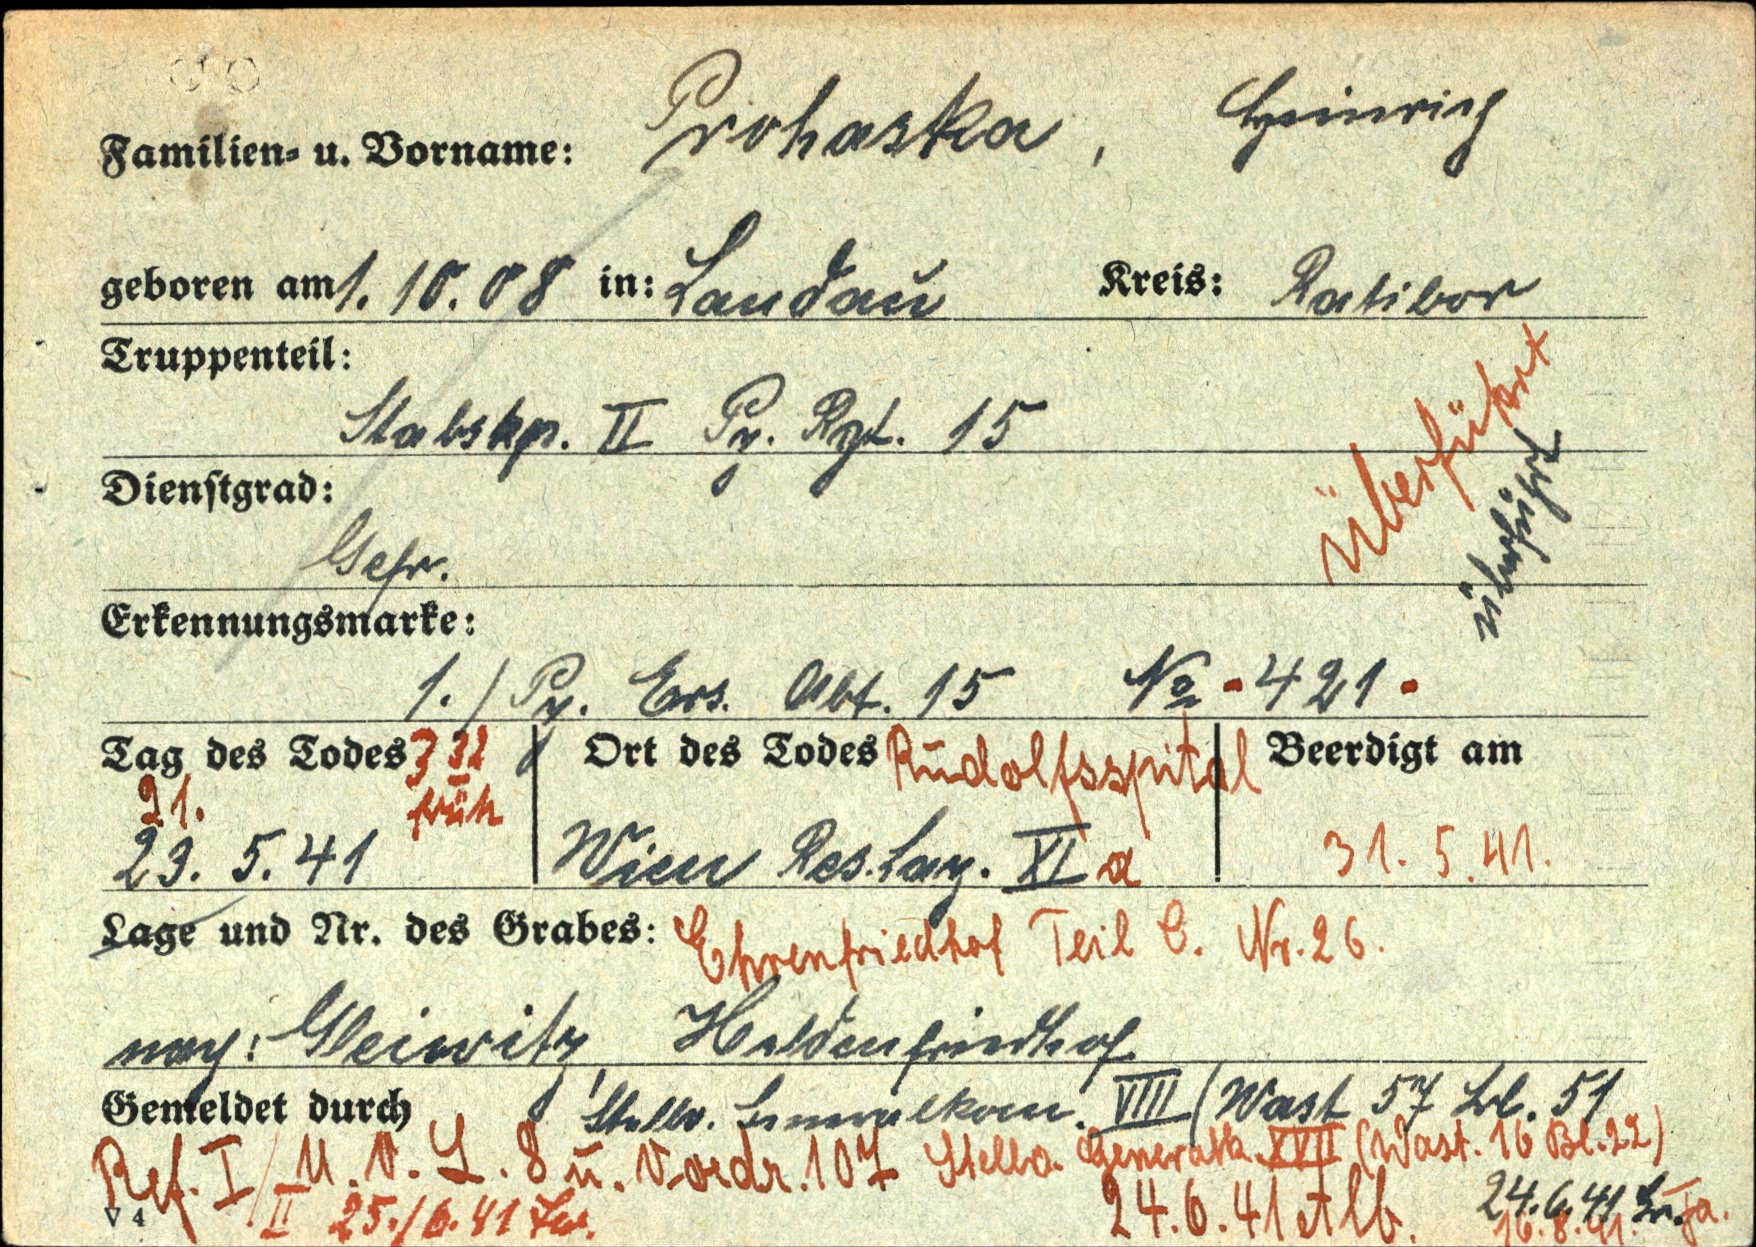 Familien- u. Vorname: Prohaska, Heinrich
geboren am 1. 10. 08 in: Landau Kreis: Ratibor
Truppenteil:
Stabskp. II Pz. Rgt. 15
überführt
überführt
Dienstgrad:
Gefr.
Erkennungsmarke:
1. / Pz. Ers. Abt. 15 No - 421 -
Tag des Todes 3 32 früh Ort des Todes Rudolfsspital Beerdigt am
21.
23. 5. 41 Wien Res. Laz. XI a 31. 5. 41.
Lage und Nr. des Grabes: Ehrenfriedhof Teil C. Nr. 26.
nach: Gleiwitz Heldenfriedhof
Gemeldet durch Stellv. Generalkom. VIII (Wast 57 Bl. 51
Ref. I / U. V. L. 8 u. V. ordr. 107 Stellv. Generalk. XVII (Wast. 16 Bl. 22)
II 25./6. 41 24. 6. 41 Alb. 24. 6. 41
V 4 16. 8. 41.